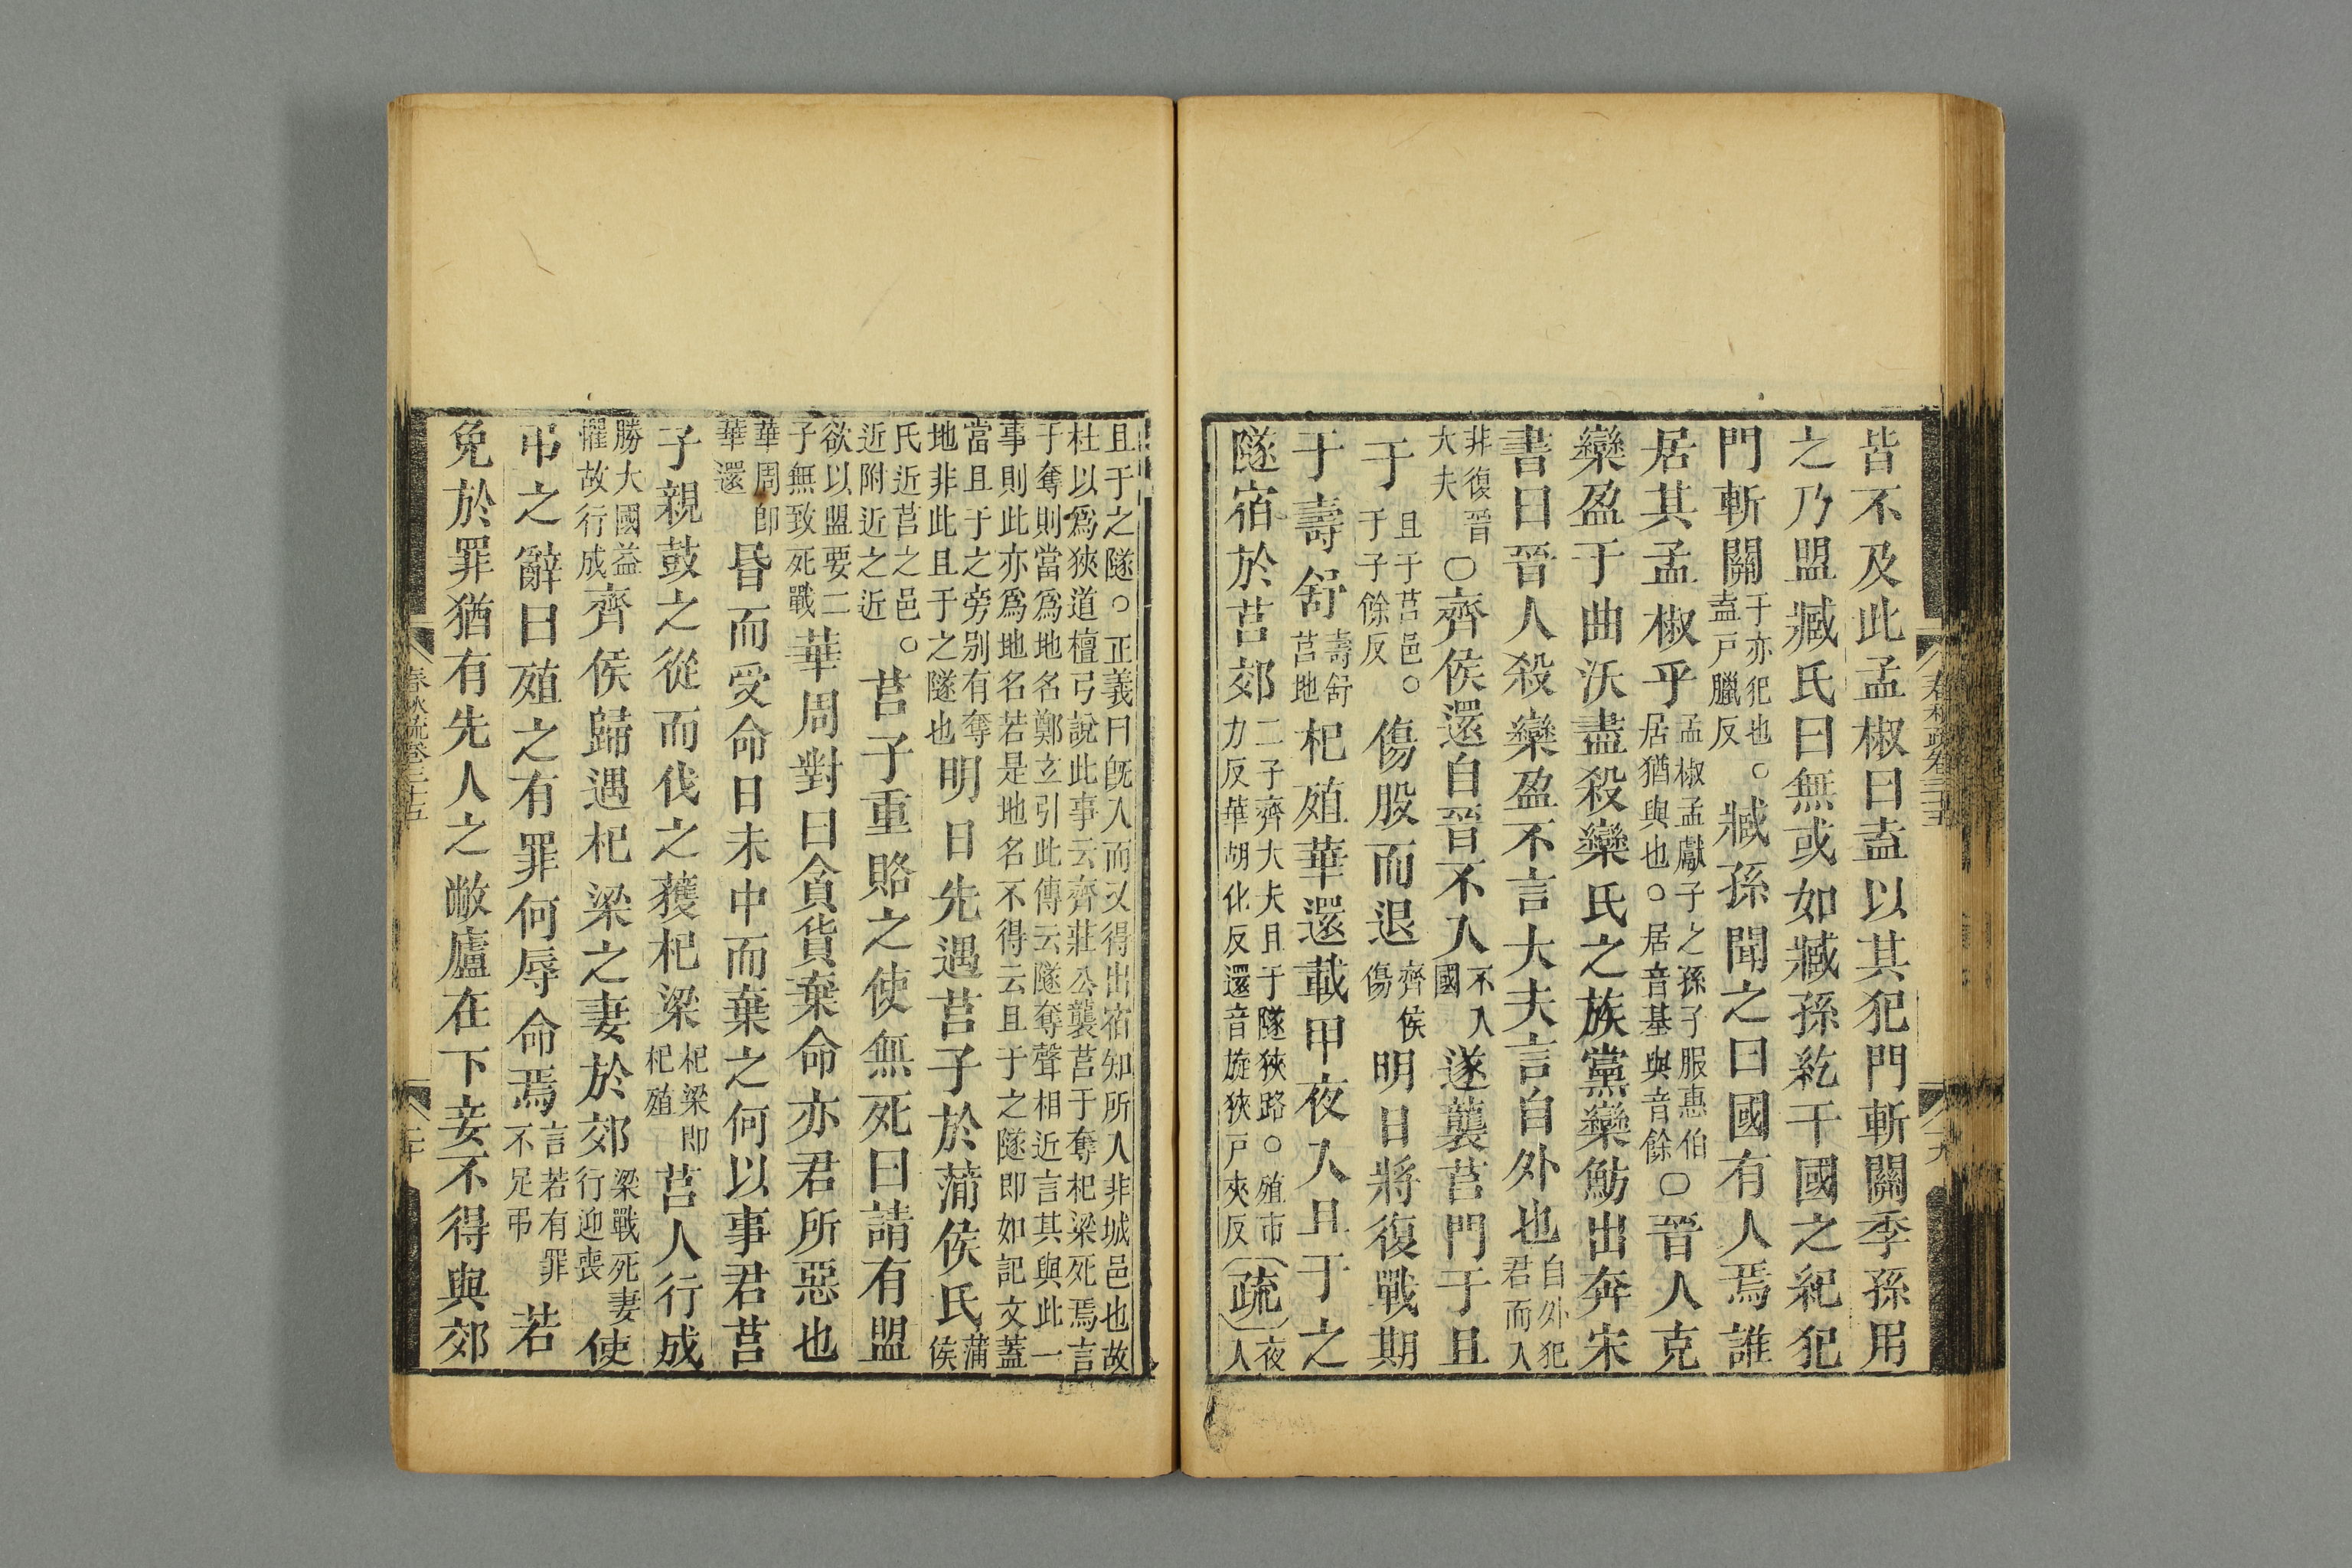 皆不及此孟椒曰盍以其犯門斬關季孫用
之乃盟臧氏曰無或如臧孫紇干國之紀犯
門斬關干亦犯也。盍戸臘反臧孫聞之曰國有人焉誰
居其孟椒乎孟椒孟獻子之孫子服惠伯居猶與也○居音基與音餘○晉人克
欒盈于曲沃盡殺欒氏之族黨欒魴出奔宋
書曰晉人殺欒盈不言大夫言自外也自外犯君而入
非復晉大夫○齊侯還自晉不入不入國遂襲莒門于且
于且于莒邑。于子餘反傷股而退齊侯傷明日將復戰期
于壽舒壽舒莒地杞殖華還載甲夜入且于之
隧宿於莒郊二子齊大夫且于隧狹路○殖市力反華胡化反還音旋狹戸夾反疏夜入
且于之隧○正義曰既入而又得出宿知所入非城邑也故
杜以爲狹道檀弓說此事云齊莊公襲莒于奪杞梁死焉言
于奪則當爲地名鄭玄引此傳云隧奪聲相近言其與此一
事則此亦爲地名若是地名不得云且于之隧即如記文蓋
當且于之旁别有奪地非此且于之隧也明日先遇莒子於蒲侯氏蒲侯
氏近莒之邑。近附近之近莒子重賂之使無死曰請有盟
欲以盟要二子無致死戰華周對曰貪貨棄命亦君所惡也
華周卽華還昏而受命日未中而棄之何以事君莒
子親鼓之從而伐之獲杞梁杞梁即杞殖莒人行成
勝大國益懼故行成齊侯歸遇杞梁之妻於郊梁戰死妻行迎喪使
弔之辭曰殖之有罪何辱命焉言若有罪不足弔若
免於罪猶有先人之敝廬在下妾不得與郊
春秋疏卷三十五
二十